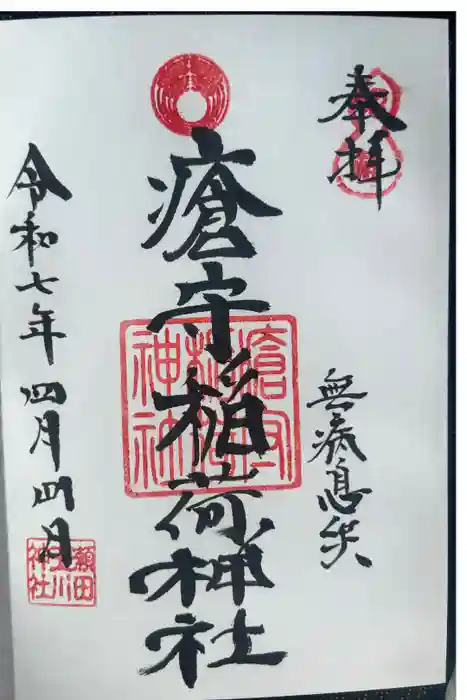 奉拝
無病息災
瘡守稲荷神社
瘡守
稲荷
神社
令和七年四月四日
瀬田
玉川
神社